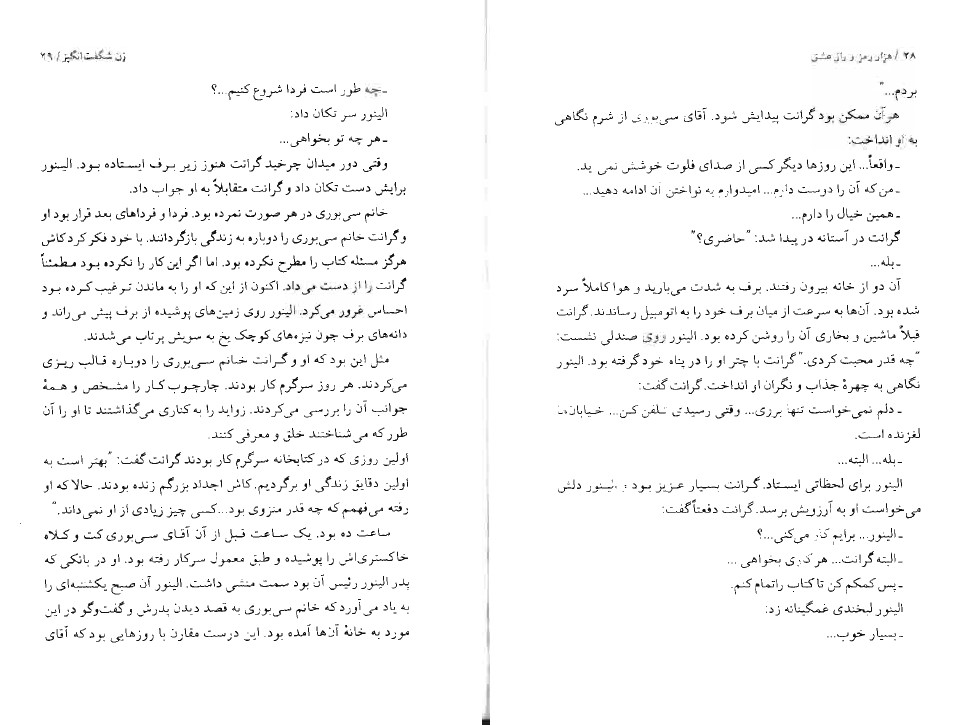 ۲۸ / هزار رمز و راز عشق
بردم..."
هرآن ممکن بود گرانت پیدایش شود. آقای سی‌بوری از شرم نگاهی
به او انداخت:
ـ واقعاً... این روزها دیگر کسی از صدای فلوت خوشش نمی‌آید.
ـ من که آن را دوست دارم... امیدوارم به نواختن آن ادامه دهید...
ـ همین خیال را دارم...
گرانت در آستانه در پیدا شد: "حاضری؟"
ـ بله...
آن دو از خانه بیرون رفتند. برف به شدت می‌بارید و هوا کاملاً سرد
شده بود. آن‌ها به سرعت از میان برف خود را به اتومبیل رساندند. گرانت
قبلاً ماشین و بخاری آن را روشن کرده بود. الینور روی صندلی نشست:
"چه قدر محبت کردی." گرانت با چتر او را در پناه خود گرفته بود. الینور
نگاهی به چهرهٔ جذاب و نگران او انداخت. گرانت گفت:
ـ دلم نمی‌خواست تنها بروی... وقتی رسیدی تلفن کن... خیابان‌ها
لغزنده است.
ـ بله... البته...
الینور برای لحظاتی ایستاد. گرانت بسیار عزیز بود و الینور دلش
می‌خواست او به آرزویش برسد. گرانت دفعتاً گفت:
ـ الینور... برایم کار می‌کنی...؟
ـ البته گرانت... هر کاری بخواهی ...
ـ پس کمکم کن تا کتاب را تمام کنم.
الینور لبخندی غمگینانه زد:
ـ بسیار خوب...
زن شگفت‌انگیز / ۲۹
ـ چه طور است فردا شروع کنیم...؟
الینور سر تکان داد:
ـ هر چه تو بخواهی...
وقتی دور میدان چرخید گرانت هنوز زیر برف ایستاده بود. الینور
برایش دست تکان داد و گرانت متقابلاً به او جواب داد.
خانم سی‌بوری در هر صورت نمرده بود. فردا و فرداهای بعد قرار بود او
و گرانت خانم سی‌بوری را دوباره به زندگی بازگردانند. با خود فکر کرد کاش
هرگز مسئله کتاب را مطرح نکرده بود. اما اگر این کار را نکرده بود مطمئناً
گرانت را از دست می‌داد. اکنون از این که او را به ماندن ترغیب کرده بود
احساس غرور می‌کرد. الینور روی زمین‌های پوشیده از برف پیش می‌راند و
دانه‌های برف چون نیزه‌های کوچک یخ به سویش پرتاب می‌شدند.
مثل این بود که او و گرانت خانم سی‌بوری را دوباره قالب ریزی
می‌کردند. هر روز سرگرم کار بودند. چارچوب کار را مشخص و همهٔ
جوانب آن را بررسی می‌کردند. زواید را به کناری می‌گذاشتند تا او را آن
طور که می‌شناختند خلق و معرفی کنند.
اولین روزی که در کتابخانه سرگرم کار بودند گرانت گفت: "بهتر است به
اولین دقایق زندگی او برگردیم. کاش اجداد بزرگم زنده بودند. حالا که او
رفته می‌فهمم که چه قدر منزوی بود...کسی چیز زیادی از او نمی‌داند."
ساعت ده بود. یک ساعت قبل از آن آقای سی‌بوری کت و کلاه
خاکستری‌اش را پوشیده و طبق معمول سرکار رفته بود. او در بانکی که
پدر الینور رئیس آن بود سمت منشی داشت. الینور آن صبح یکشنبه‌ای را
به یاد می‌آورد که خانم سی‌بوری به قصد دیدن پدرش و گفت‌وگو در این
مورد به خانهٔ آن‌ها آمده بود. این درست مقارن با روزهایی بود که آقای